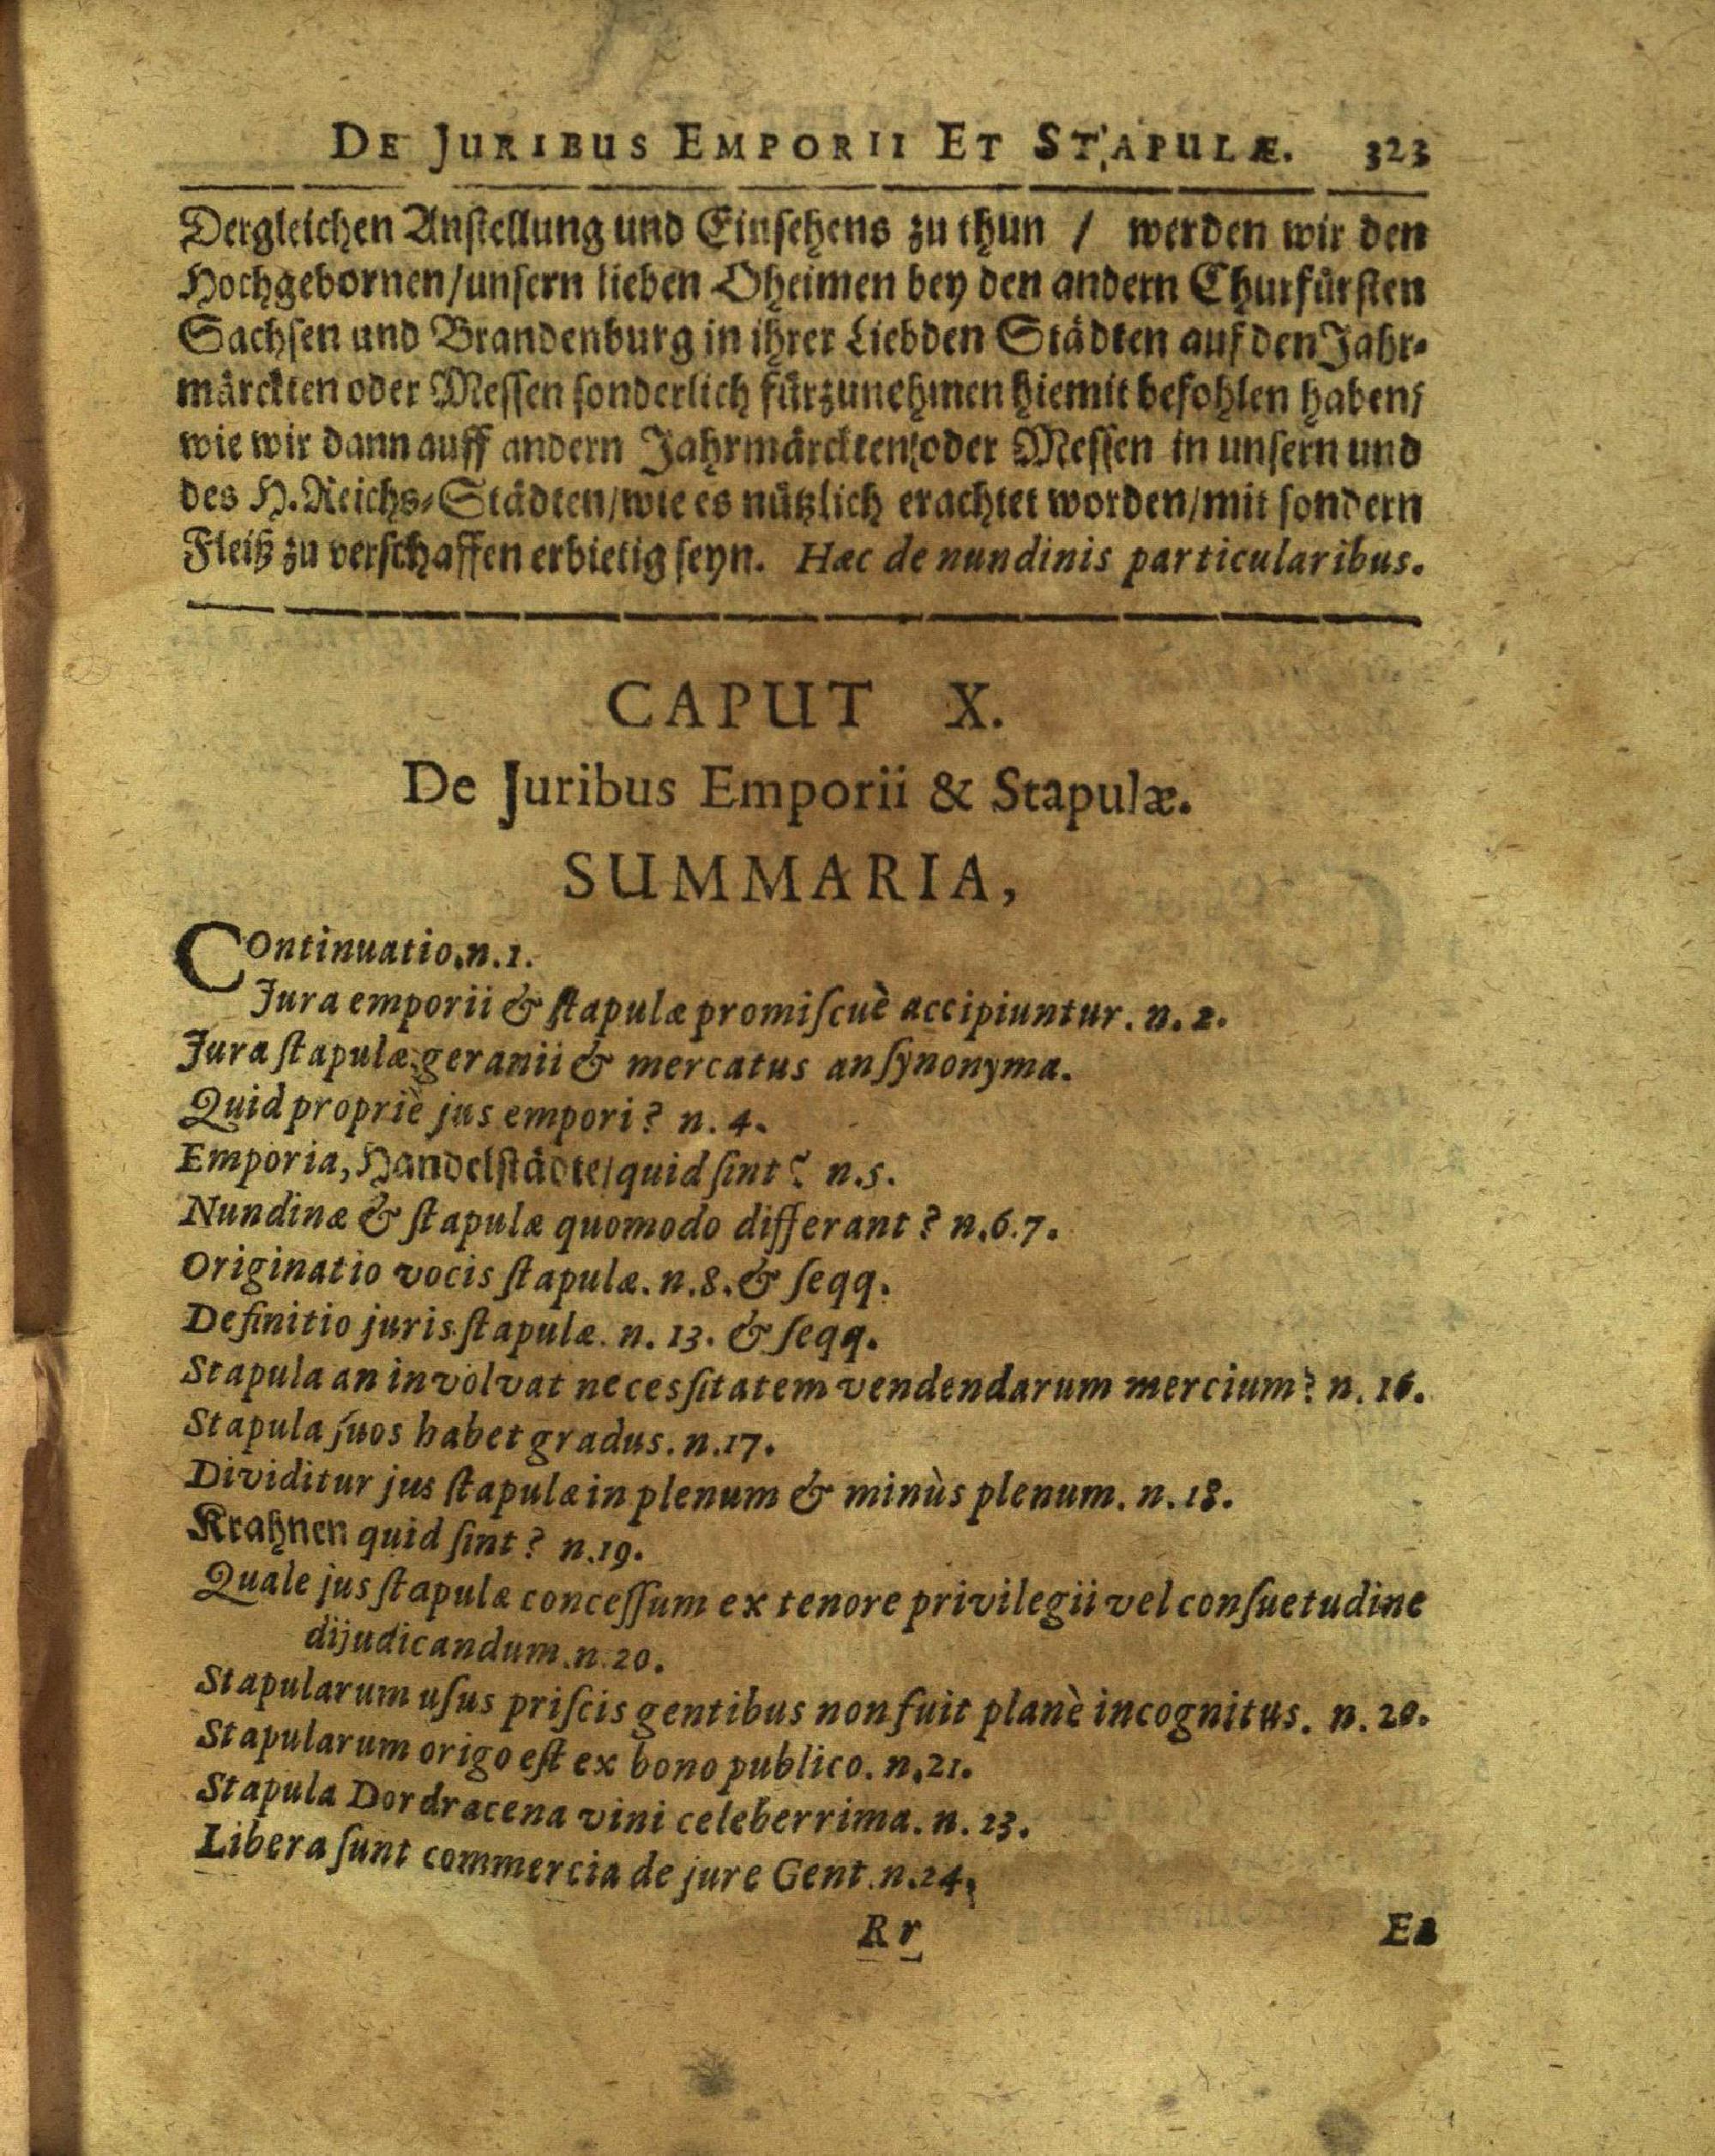 DE JURIBUS EMPORII ET STAPULÆ. 323
Dergleichen Anstellung und Einsehens zu thun / werden wir den
Hochgebornen/unsern lieben Oheimen bey den andern Churfürsten
Sachsen und Brandenburg in ihrer Liebden Städten auf den Jahr-
märckten oder Messen sonderlich fürzunehmen hiemit befohlen haben/
wie wir dann auff andern Jahrmärckten/oder Messen in unsern und
des H. Reichs-Städten/wie es nützlich erachtet worden/mit sondern
Fleiß zu verschaffen erbietig seyn. Hæc de nundinis particularibus.
CAPUT X.
De Juribus Emporii & Stapulæ.
SUMMARIA,
COntinuatio.n.1.
Jura emporii & ſtapulæ promiſcuè accipiuntur. n. 2.
Jura ſtapulæ geranii & mercatus an ſynonyma.
Quid propriè jus empori? n. 4.
Emporia, Handelſtädte/quid ſint? n.5.
Nundinæ & ſtapulæ quomodo differant? n.6.7.
Originatio vocis ſtapulæ. n.8. & ſeqq.
Definitio juris ſtapulæ. n. 13. & ſeqq.
Stapula an involvat necesſitatem vendendarum mercium? n. 16.
Stapula ſuos habet gradus. n.17.
Dividitur jus ſtapulæ in plenum & minùs plenum. n. 18.
Krahnen quid ſint? n.19.
Quale jus ſtapulæ conceſſum ex tenore privilegii vel conſuetudine
dijudicandum.n.20.
Stapularum uſus priſcis gentibus non fuit planè incognitus. n. 20.
Stapularum origo eſt ex bono publico. n.21.
Stapula Dordracena vini celeberrima. n. 23.
Libera ſunt commercia de jure Gent. n.24.
Rr